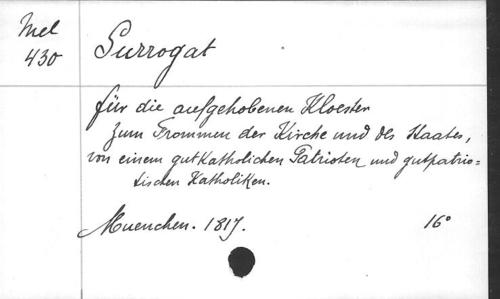 Mel
430
Surrogat
für die aufgehobenen Kloester
zum Frommen der Kirche und des Staates,
von einem gutkatholichen Patrioten und gutpatrio=
tischen Katholiken.
Muenchen. 1817.
16°